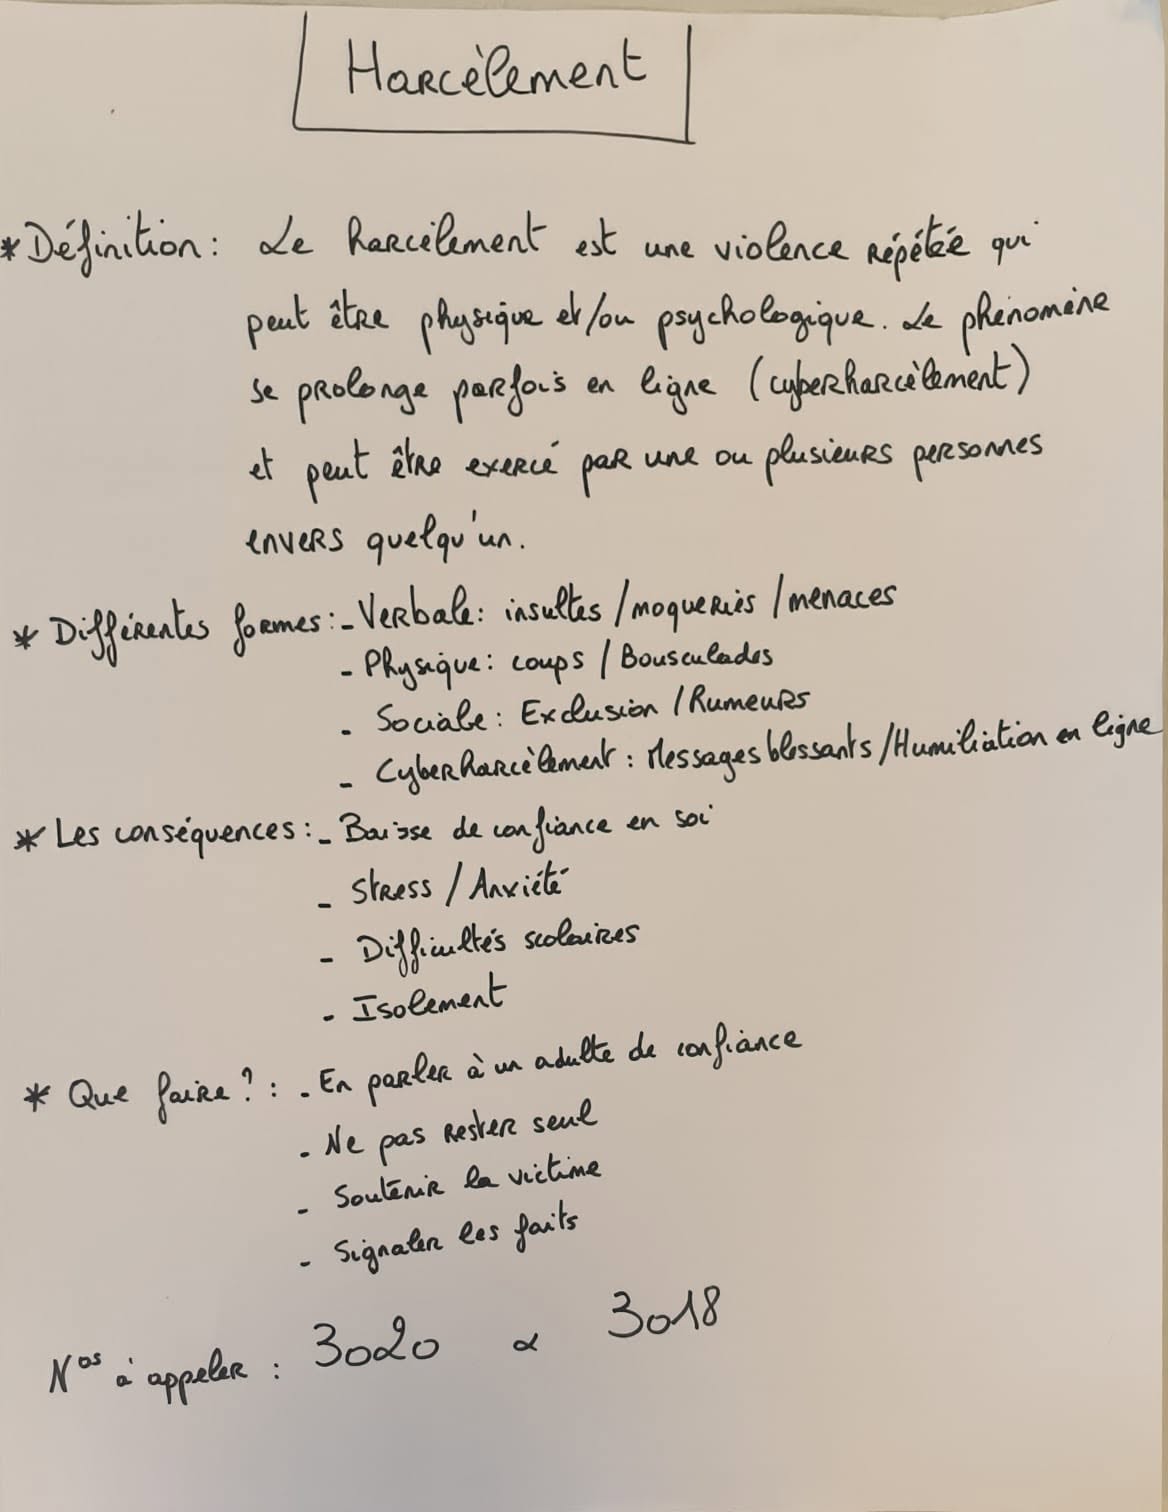 Harcèlement
* Définition : Le harcèlement est une violence répétée qui
peut être physique et/ou psychologique. Le phénomène
se prolonge parfois en ligne (cyberharcèlement)
et peut être exercé par une ou plusieurs personnes
envers quelqu'un.
* Différentes formes : - Verbale : insultes / moqueries / menaces
- Physique : coups / Bousculades
- Sociale : Exclusion / Rumeurs
- Cyberharcèlement : Messages blessants / Humiliation en ligne
* Les conséquences : - Baisse de confiance en soi
- Stress / Anxiété
- Difficultés scolaires
- Isolement
* Que faire ? : - En parler à un adulte de confiance
- Ne pas rester seul
- Soutenir la victime
- Signaler les faits
Nos à appeler : 3020 & 3018